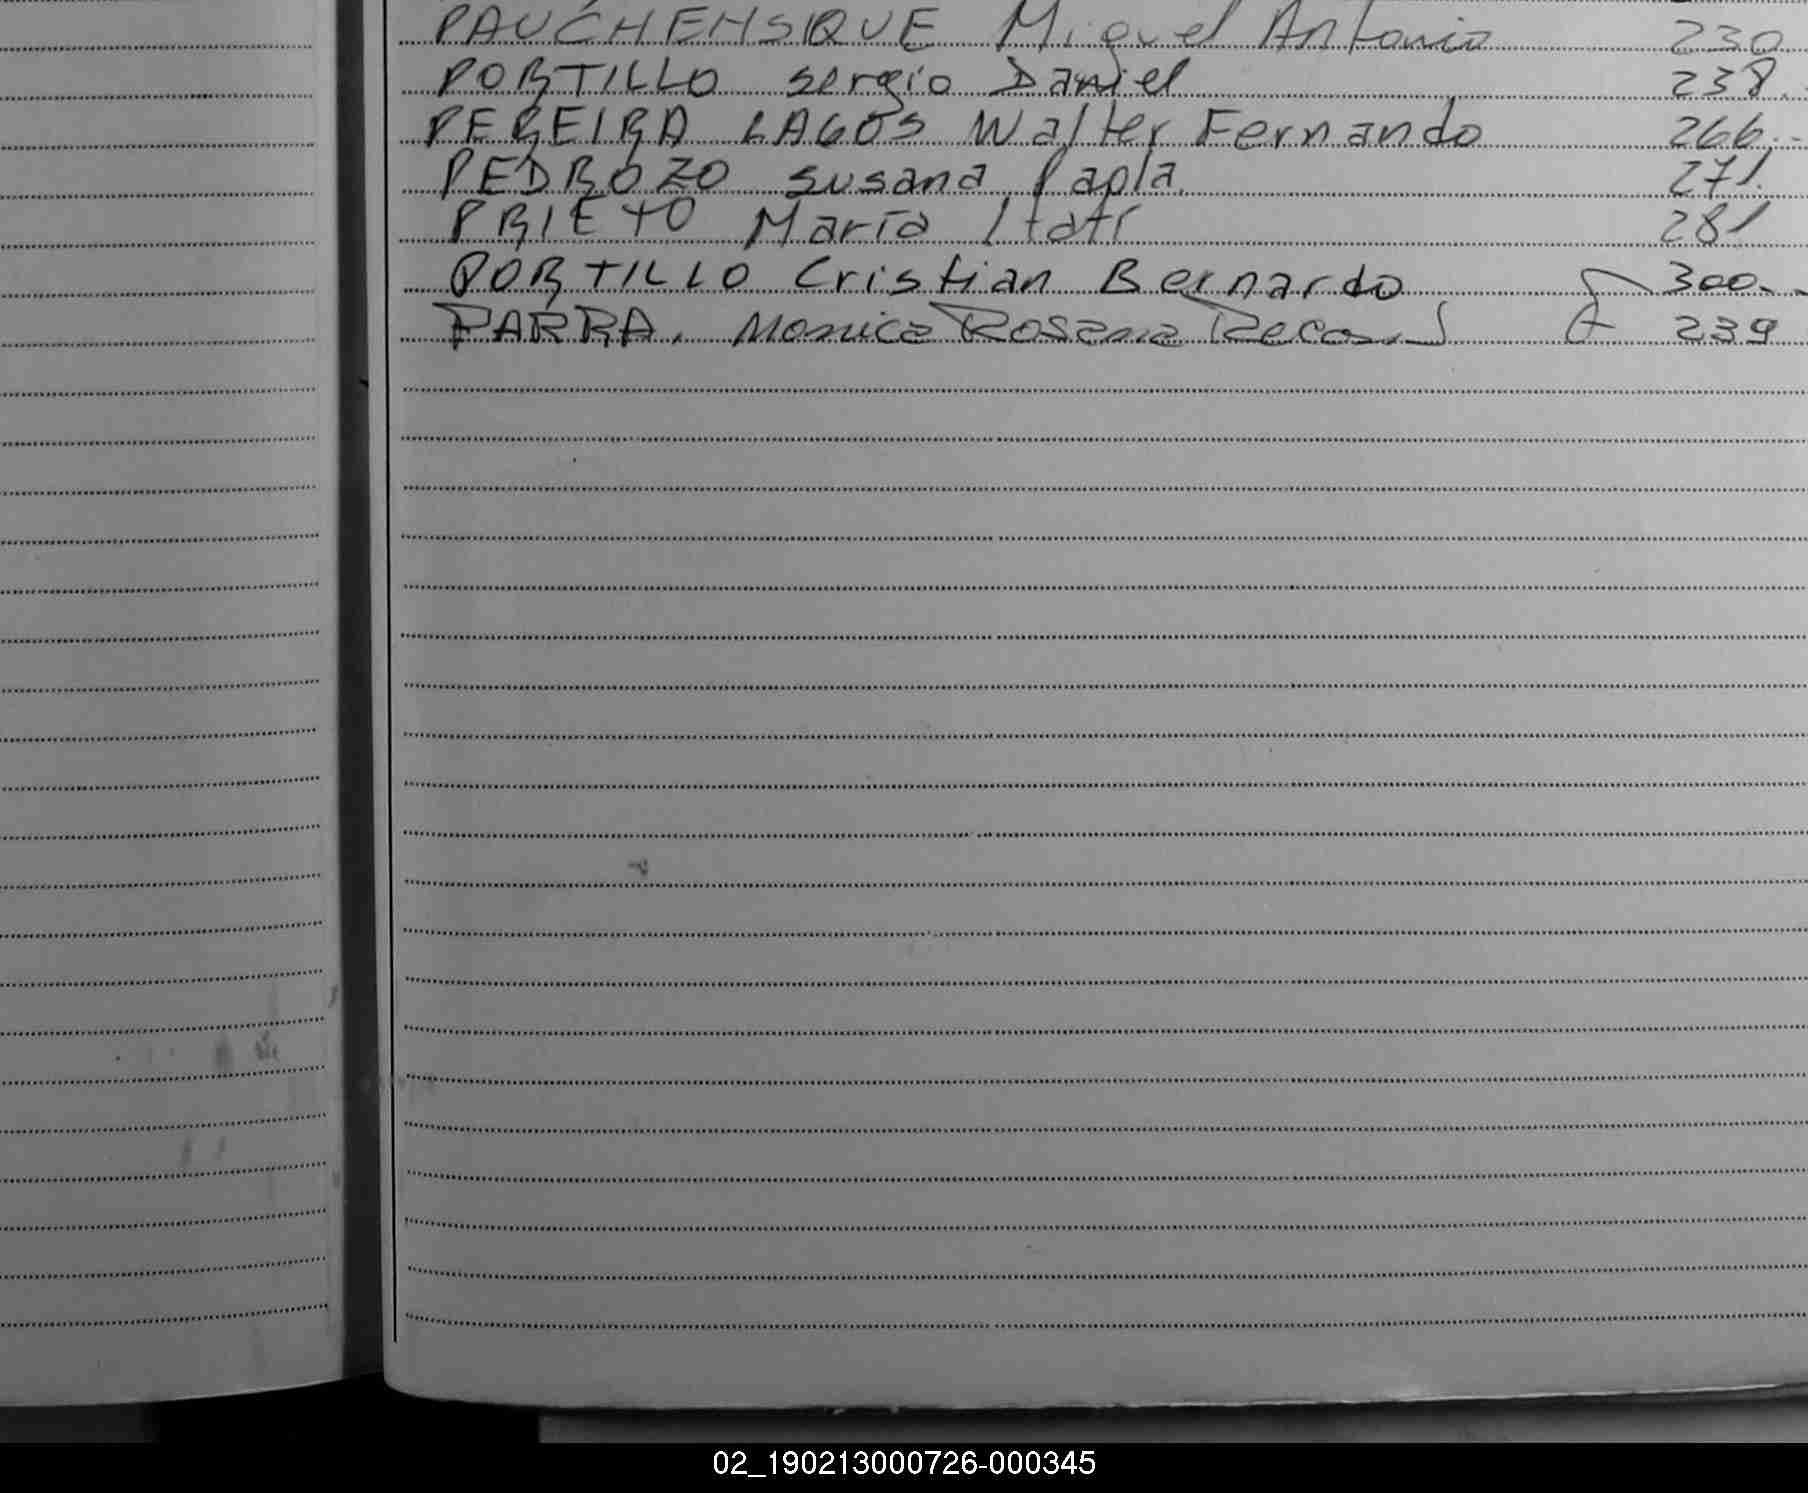 PAUCHENSIQUE Miguel Antonio 230
PORTILLO Sergio Daniel 238.
PEREIRA LAGOS Walter Fernando 266.-
PEDROZO Susana Paola. 271.
PRIETO María Itatí 281
PORTILLO Cristian Bernardo 300.-
PARRA, Monica Rosana 239
02_190213000726-000345